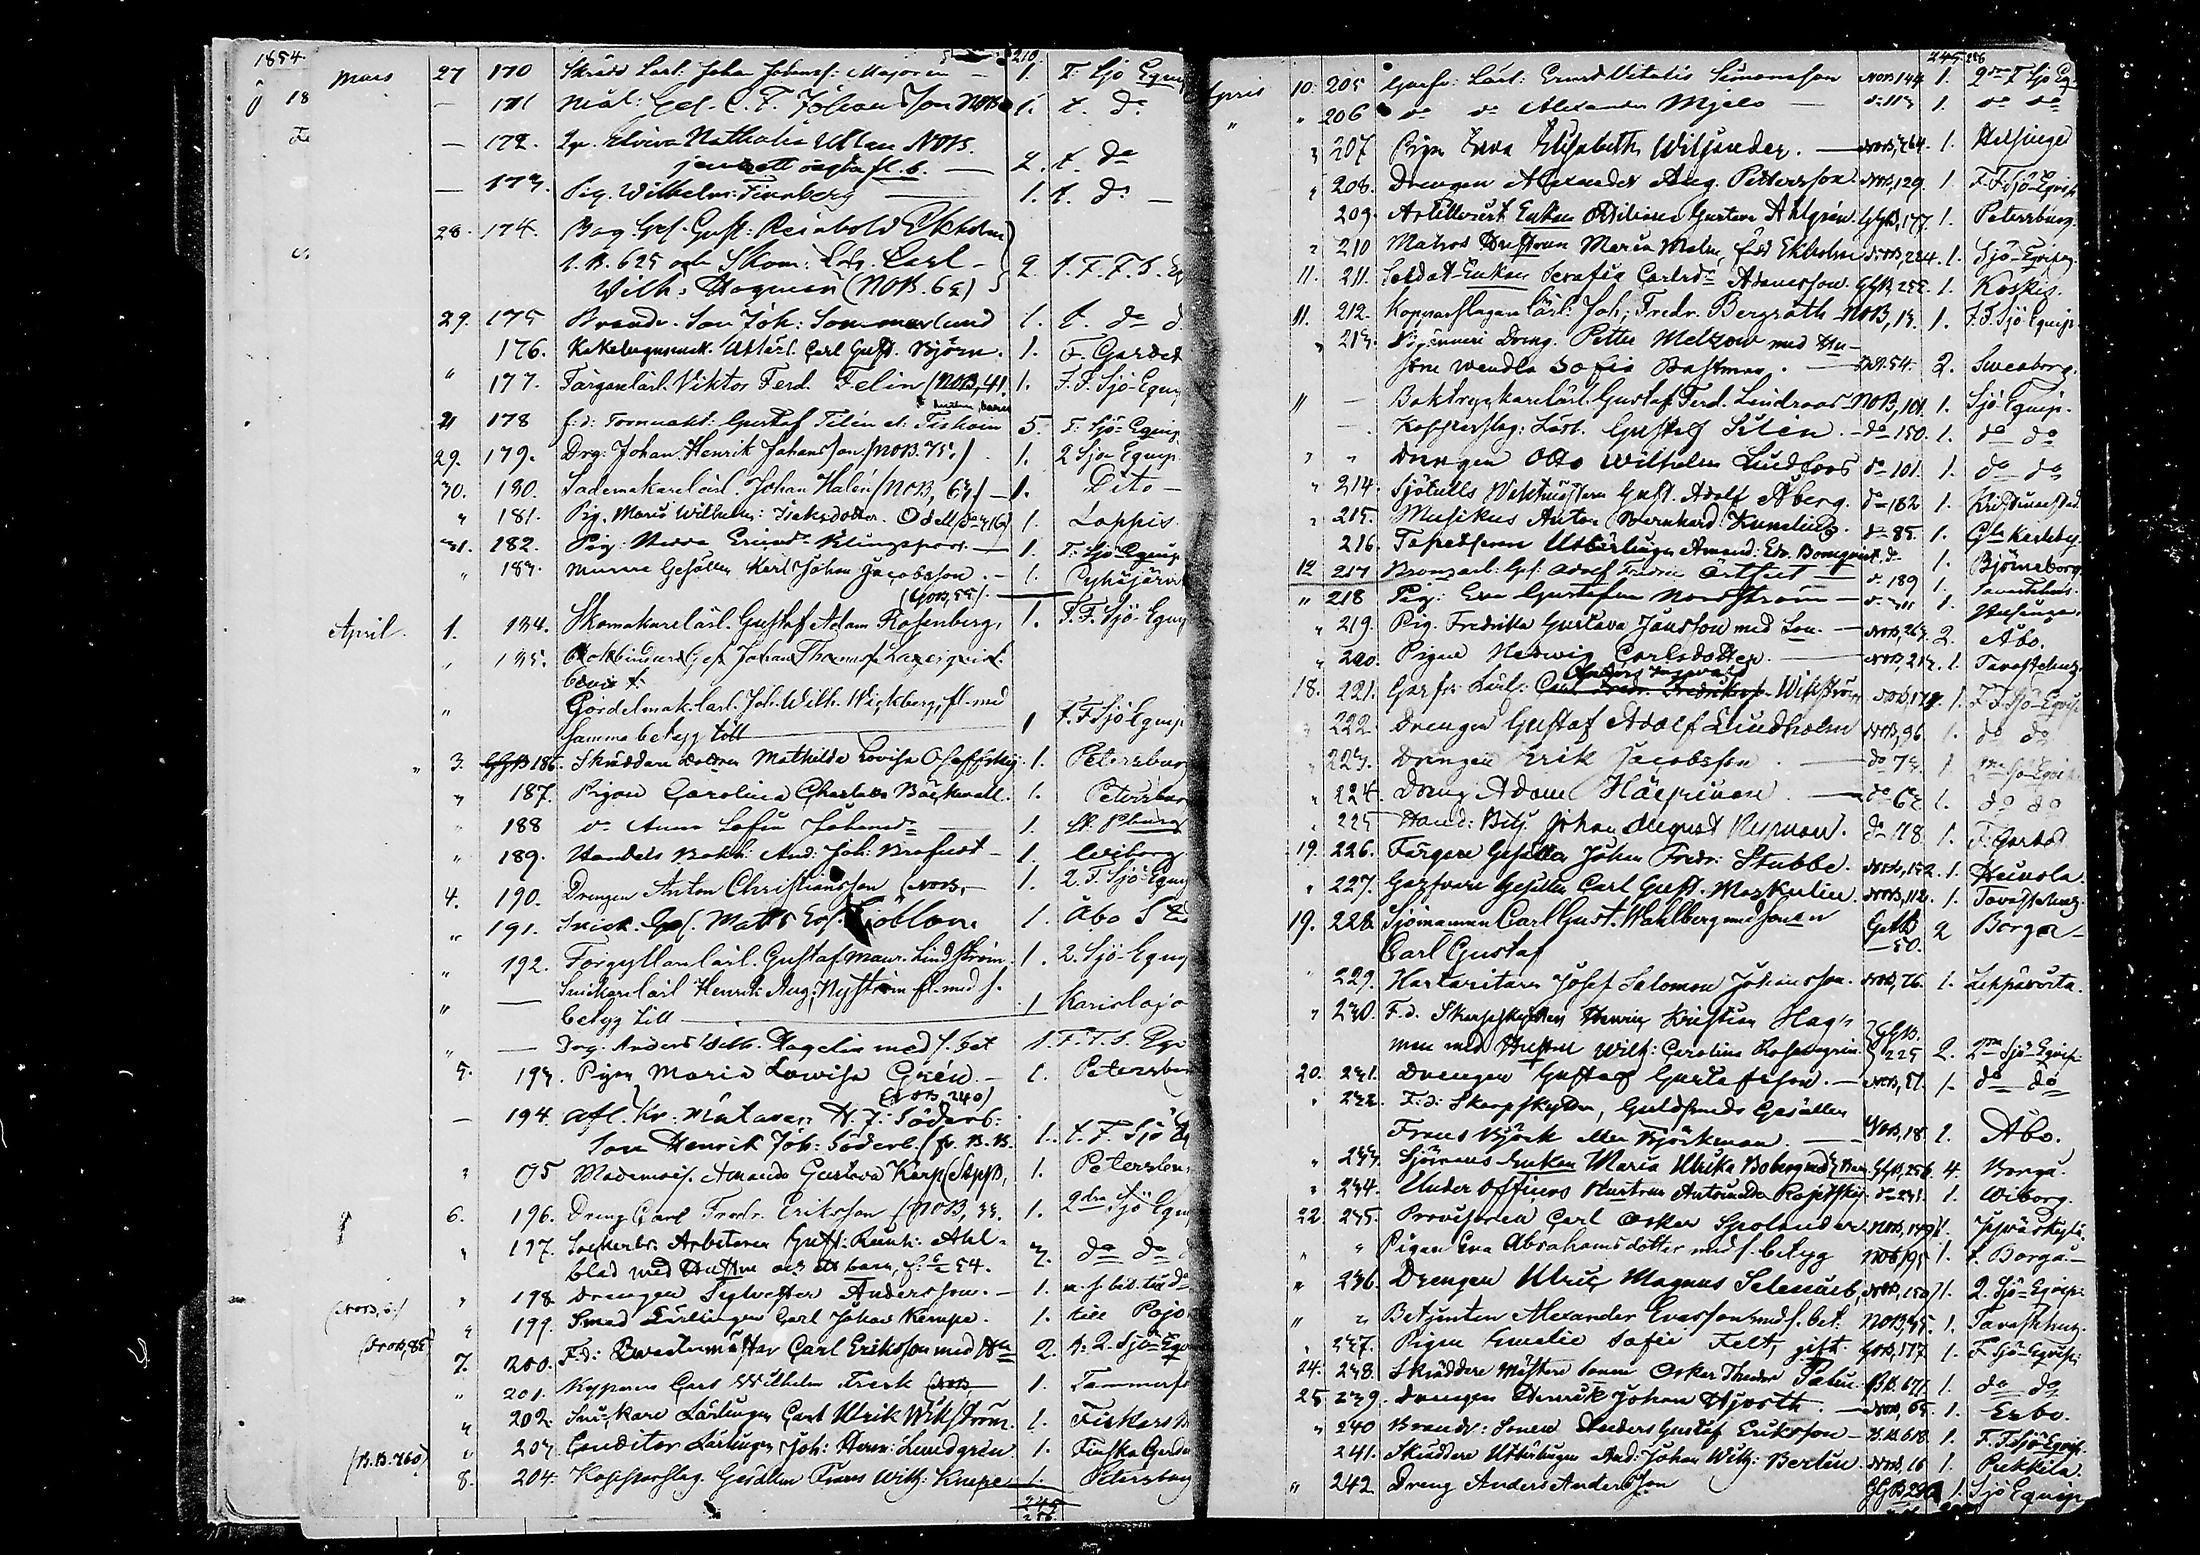 1854
Mars 27 170 Skrädd Lärl. Johan Johans s. Majorin — 1. F. Sjö Equip
— 171 Mål: Ges. C. F. Johansson NOB 1. t. do
— 172. Elvira Nathalia Ullan NOB.
jemte ett oägta fl. b. — 2. t. do
— 173. Pig. Wilhelm: Finnberg — 1. t. do —
28. 174. Bag. Ges. Gust: Reinhold Ekholm
1. B. 625 och Skom: Lärl. Carl
Wilh. Hagman (NOB. 62) 2. 1. F. F. S.
29. 175 Brandv. Son Joh: Sommarlund 1. t. do
176. Kakelugnsmak. Utlärl. Carl Gust. Björn. 1. F. Gardet
" 177. Färgarelärl. Viktor Ferd. Felin (NOB, 41. 1. F. F. Sjö-Equip
21 178 f. d: Tornvakt: Gustaf Filén 5. F. Sjö-Equip
29. 179. Drg: Johan Henrik Johansson (NOB. 75.) 1. 2 Sjö Equip.
30. 180. Sademakarelärl. Johan Halén (NOB, 63) — 1. Dito —
" 181. Pig. Maria Wilhelm: Isaksdotter. Odell 1. Loppis
31. 182. Pig: Klingspor. — 1. F. Sjö Equip
" 183. Murare Gesällen Karl Johan Jacobsson. — 1. Pyhäjärvi
(GOB, 55)
April 1. 184. Skomakarelärl. Gustaf Adam Rosenberg, 1. F. F. Sjö-Equip
" 185. Bokbindare Ges. Johan Thomas Lagerqvist.
" Gördelmak. lärl. Joh. Wilh. Wickberg, fl. med
samma betyg till 1 F. F. Sjö Equip
" 3. 186. Skräddare Dottren Mathilda Lovisa 1. Petersburg
" 187. Pigan Carolina Charlotta Bäckvall. 1. Petersburg
" 188 do Anna Sofia Johansd. — 1. St. Petersburg
" 189. Handels Bokh: And. Joh: Brofeldt — 1. Wiborg
4. 190. Drengen Anton Christiansson (NOB, — 1. 2. F. Sjö-Equip
" 191. Snick. Ges. Matts 1. Åbo
" 192. Förgyllarelärl. Gustaf Maur. Lindström. 1. 2. Sjö-Equip
" — Snickarelärl Henrik Aug. Nyström fl. med s.
betyg till 1 Karislojo
" — Drg. Anders Wilh. Hagelin med s. bet 1. F. F. S.
5. 193. Pigan Maria Lowisa Grén. — 1. Petersburg
(NOB, 240)
— 194. Afl. Kr. Mätaren H. J: Söderb:
Son Henrik Joh: Söderb. 1. t. F. Sjö
" 95 Mademois. Amanda Gustava Karp 1. Petersburg
6. 196. Dreng Carl Fredr. Eriksson (NOB, 33. 1. 2dra Sjö Equip
" 197. Sockerbr. Arbetaren Gust: Reinh: Ahl-
blad med Hustru och ett barn, 54. 3. do do
" 198 Drengen Sylvester Andersson. — 1.
(NOB, " 199. Smed Lärlingen Carl Johan Kempe. 1. till Pojo
(NOB, 85 7. 200. F. d: Qvartermästar Carl Eriksson med Hu 2. 2. Sjö-Equip
" 201. Kyparen Carl Wilhelm Fresk (NOB, 1. Tammerfo
" 202. Snickare Lärlingen Carl Ulrik Wikström. 1. Fiskars
(B. B. 760) " 203. Conditor Lärlingen Joh: Herm: Lundgrén 1. Finska Garde
8. 204. Kopparslag. Gesällen Frans Wilh: Knape 1. Petersburg
245
256.
245 256
April 10. 205 Garfv: Lärl: Ernst Vitalis Simonsson NOB 144 1. 2dra F Sjö Eq
" " 206 do do Alexander Mjelo — do 113 1. do do
" 207 Pigan Ewa Elisabeth Wiljander. — NOB, 264. 1. Helsinge
" 208. Drengen Alexander Aug. Pettersson. NOB, 129. 1. F. F. Sjö-Equip
209. Artillerist Enkan Ottiliana Gustava Ahlgren. GGB, 177. 1. Petersburg.
" 210 Matros Hustrun Maria Malm, född Ekholm NOB, 224. 1. Sjö-Equipag.
11. 211. Soldat-Enkan Serafia Carlsd. Adamsson. GGB 252. 1. Koskis.
11. 212. Kopparslagare lärl: Joh: Fredr. Bergroth NOB, 13. 1. F. F. Sjö Equip.
" 213. Dreng. Petter Meltzow med Hu-
stru Wendla Sofia Bastman. — 54. 2. Sweaborg.
" — Boktryckarelärl. Gustaf Ferd. Lindroos NOB, 101. 1. Sjö Equip.
— Kopparslag: Lärl. Gustaf Silen. do 150. 1. do do
" " Drengen Otto Wilhelm Lindfors do 101. 1. do do
" 214. Sjötulls Vaktmästaren Gust. Adolf Åberg. do 182 1. Kristinaestad.
" 215. Musikus Anton Bernhard Kunelius. do 85. 1. Gla Karleby.
216. Tapetserare Utlärlingen Amand: Edv. Blomqvist do 1. Björneborg
12 217 Bronzarb: Ges. Adolf Fredric — do 189 1. Tavastehus.
" 218 Pig: Eva Gustafva Nordström — 1. Helsinge.
" 219. Pig. Fredrika Gustava Jansson med Son. — NOB, 263. 2. Åbo.
" 220. Pigan Hedwig Carlsdotter. — NOB, 213. 1. Tavastehus.
18. 221. Garfv: Lärl: Carl Fredr. Fredrikss. Wikström NOB, 1. F. F. Sjö-Equip
" 222. Drengen Gustaf Adolf Lindholm NOB, 96 1. do do
" 223. Drengen Erik Jacobsson. — do 73. 1. Sjö Equip.
" 224. Dreng Adam Härpinen. — do 62. 1. do do
" 225 Hand: Betj. Johan August Nyman. do 178. 1. F. Gardet
19. 226. Färgare Gesällen Johan Fredr: Stubbe. NOB, 152. 1. Heinola.
" 227. Garfvare Gesällen Carl Gust. Maskulin. NOB, 112. 1. Tavastehus.
19. 228. Sjömannen Carl Gust. Wahlberg med Sonen
Carl Gustaf GGB 50. 2 Borgå
" 229. Hattaritare Josef Salomon Johansson. NOB, 76. 1. Leppävirta.
" 230. F. d. Skarpskytten Henrik Kristian Hag-
man med Hustru Wilh: Carolina Rosengren. GGB. 225 2. 2dra Sjö-Equip
20. 231. Drengen Gustaf Gustafsson. — NOB, 51. 1. do do
" 232. F. d: Skarpskytten, Guldsmeds Gesällen
Frans Björk eller Björkman. — GOB, 18. 1. Åbo.
" 233. Sjömans Enkan Maria Ulrika Boberg med 3 Barn GGB, 256 4. Borgå.
" 234. Under Officers Hustrun Antoinetta do 231. 1. Wiborg.
22. 235. Provisoren Carl Oskar Spolander. NOB, 149) 1. Jyväskylä.
" " Pigan Eva Abrahamsdotter med s. betyg NOB, 195 1. t. Borgå —
" 236. Drengen Ulric Magnus Selenius, NOB, 150) 1. 2. Sjö-Equip:
" " Betjenten Alexander Evasson med s. bet. NOB, 35. 1. Tavastehus.
" 237. Pigan Emelie Sofie Felt, gift. GOB, 177. 1. F Sjö-Equip:
24. 238. Skräddare Mästare Sonen Oskar Theodor Palin. BB. 677. 1. do do
25 239. Drengen Henrik Johan Hjorth. — NOB, 65. 1. Esbo.
" 240 Brandv: Sonen Anders Gustaf Eriksson — B. B. 618 1. F. F. Sjö-Equip.
241. Skräddare Utlärlingen And: Johan Wilh: Berlin. NOB, 16 1. Pukkila.
" 242 Dreng Anders Andersson GGB 1. Sjö Equip